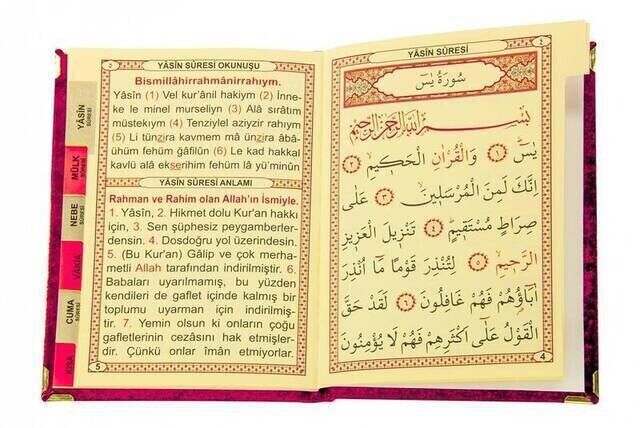 YÂSİN SÛRESİ OKUNUŞU
Bismillâhirrahmânirrahıym.
Yâsîn (1) Vel kur'ânil hakiym (2) İnne-
ke le minel murseliyn (3) Alâ sırâtım
müstekıym (4) Tenziylel aziyzir rahıym
(5) Li tünzira kavmem mâ ünzira âbâ-
ühüm fehüm ğâfilûn (6) Le kad hakkal
kavlü alâ ekserihim fehüm lâ yü'minûn
YÂSİN SÛRESİ ANLAMI
Rahman ve Rahim olan Allah'ın İsmiyle.
1. Yâsîn, 2. Hikmet dolu Kur'an hakkı
için, 3. Sen şüphesiz peygamberler-
densin. 4. Dosdoğru yol üzerindesin.
5. (Bu Kur'an) Gâlip ve çok merha-
metli Allah tarafından indirilmiştir. 6.
Babaları uyarılmamış, bu yüzden
kendileri de gaflet içinde kalmış bir
toplumu uyarman için indirilmiş-
tir. 7. Yemin olsun ki onların çoğu
gafletlerinin cezasını hak etmişler-
dir. Çünkü onlar îmân etmiyorlar.
5
YÂSİN SÛRESİ
MÜLK SÛRESİ
NEBE SÛRESİ
VÂKIA
CUMA SÛRESİ
KISA
YÂSİN SÛRESİ
٤
سُورَةُ يٰسٓ
بِسْمِ اللهِ الرَّحْمٰنِ الرَّحِيمِ
يٰسٓ ﴿١﴾ وَالْقُرْاٰنِ الْحَكِيمِ ﴿٢﴾
اِنَّكَ لَمِنَ الْمُرْسَلِينَ ﴿٣﴾ عَلٰى
صِرَاطٍ مُسْتَقِيمٍ ﴿٤﴾ تَنْزِيلَ الْعَزِيزِ
الرَّحِيمِ ﴿٥﴾ لِتُنْذِرَ قَوْمًا مَٓا اُنْذِرَ
اٰبَٓاؤُ۬هُمْ فَهُمْ غَافِلُونَ ﴿٦﴾ لَقَدْ حَقَّ
الْقَوْلُ عَلٰٓى اَكْثَرِهِمْ فَهُمْ لَا يُؤْمِنُونَ
4